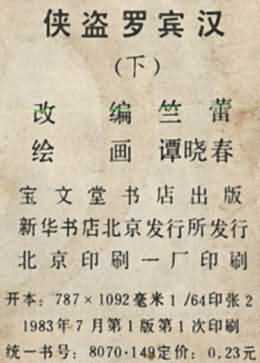 侠盗罗宾汉
(下)
改 编 竺 蕾
绘 画 谭晓春
宝文堂书店出版
新华书店北京发行所发行
北京印刷一厂印刷
开本: 787×1092毫米1/64印张2
1983年7月第1版第1次印刷
统一书号: 8070·149定价: 0.23元